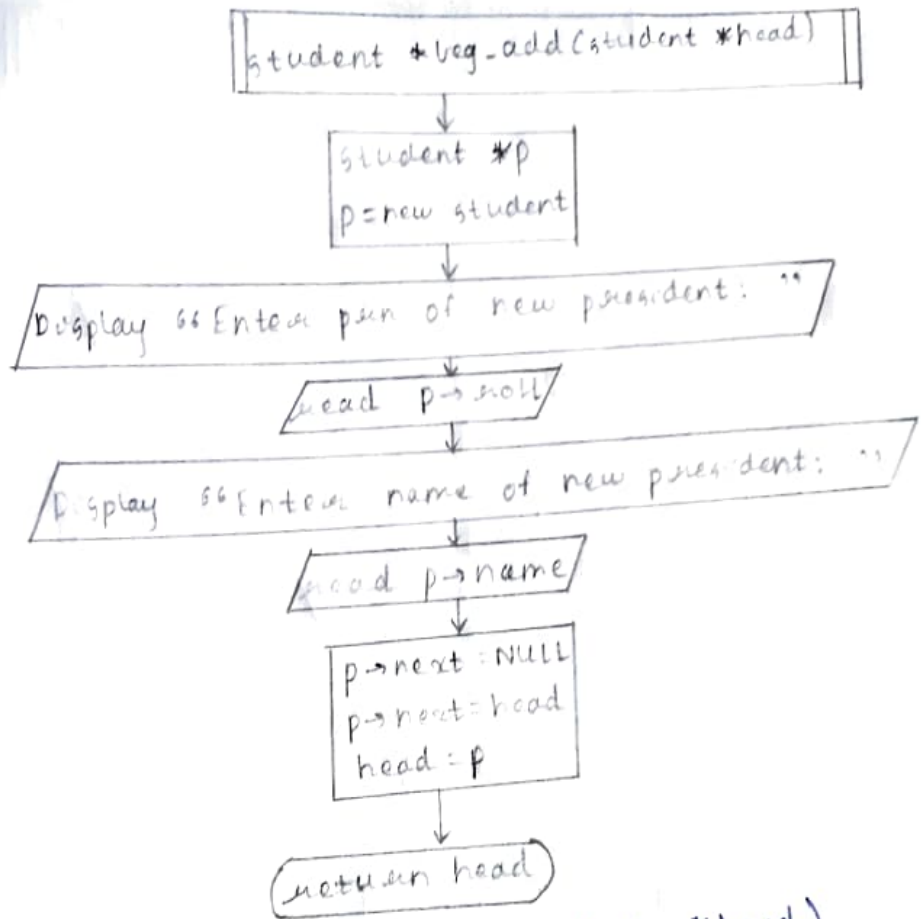 student *beg_add(student *head)
student *p
p=new student
Display "Enter prn of new president: "
read p→roll
Display "Enter name of new president: "
read p→name
p→next=NULL
p→next=head
head=p
return head